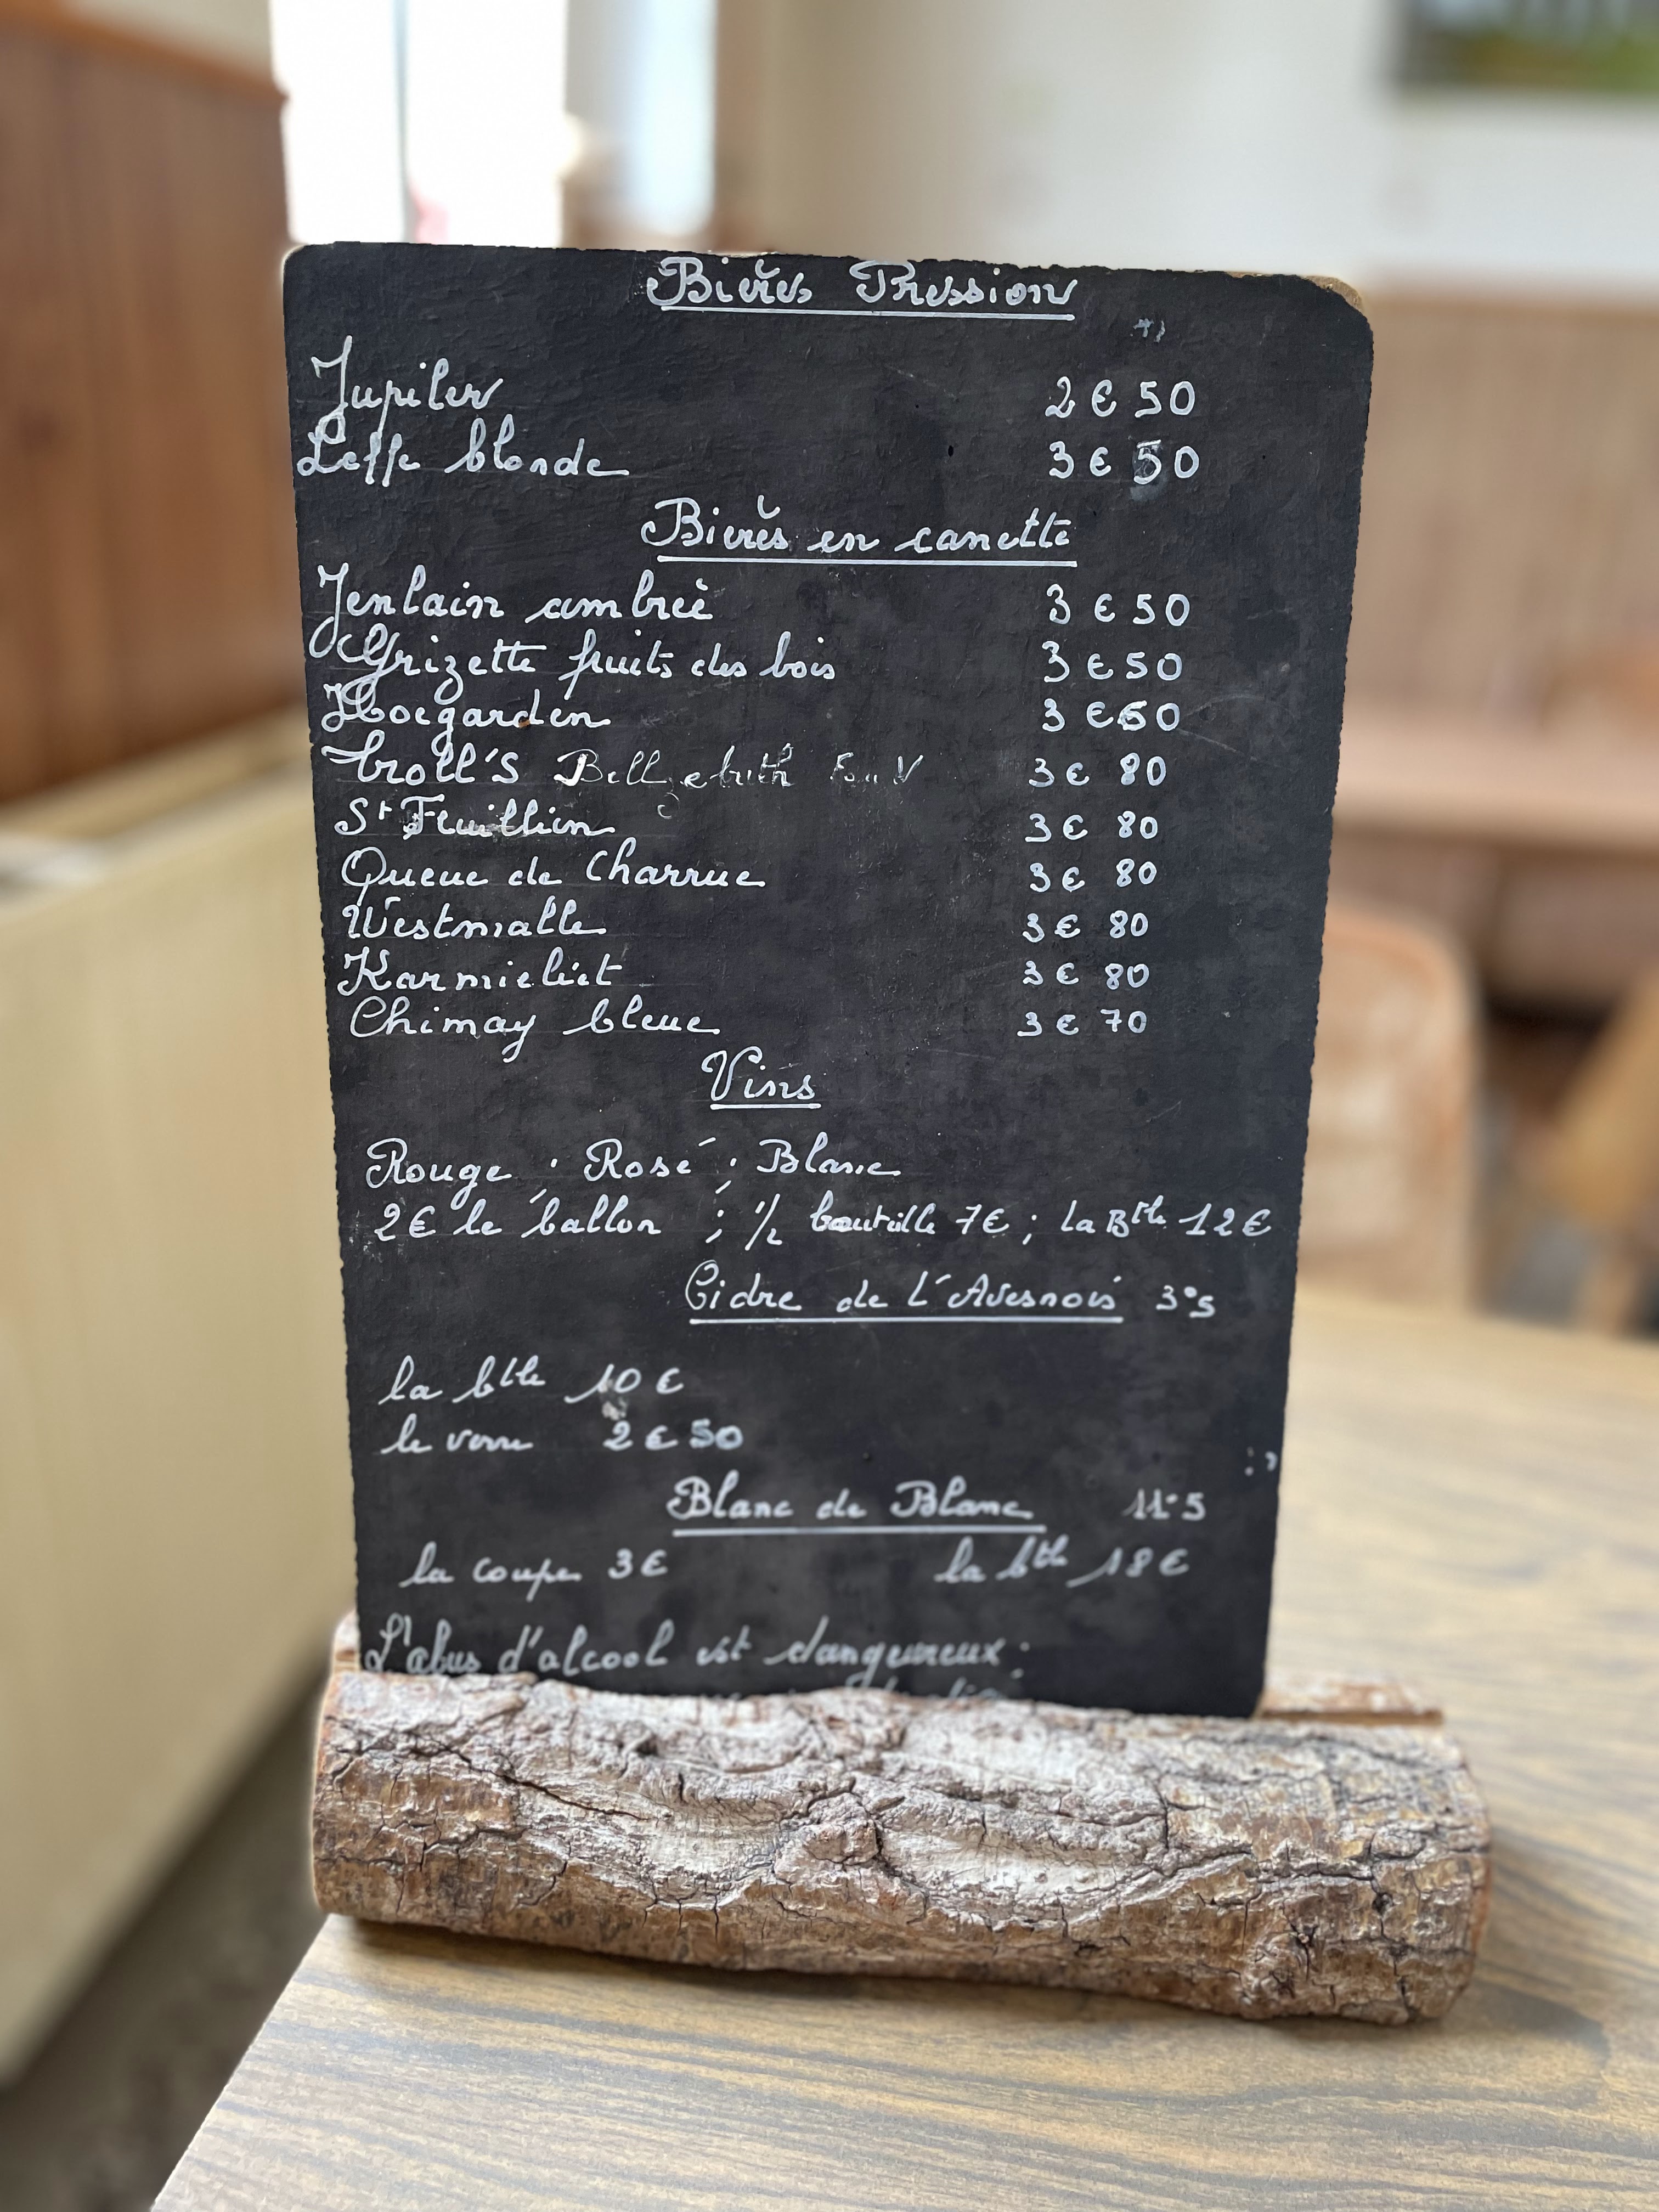 Bières Pression
Jupiler 2€50
Leffe blonde 3€50
Bières en canette
Jenlain ambrèè 3€50
Grizette fruits des bois 3€50
Hoegarden 3€60
Troll's Bellzebuth 3€80
St Feuillien 3€80
Queue de Charrue 3€80
Westmalle 3€80
Karmieliet 3€80
Chimay bleue 3€70
Vins
Rouge ; Rosé ; Blanc
2€ le ballon ; 1/2 bouteille 7€ ; la Btle 12€
Cidre de L'Avesnois 3°5
la btle 10€
le verre 2€50
Blanc de Blanc 11°5
la coupe 3€ la btle 18€
L'abus d'alcool est dangeureux :